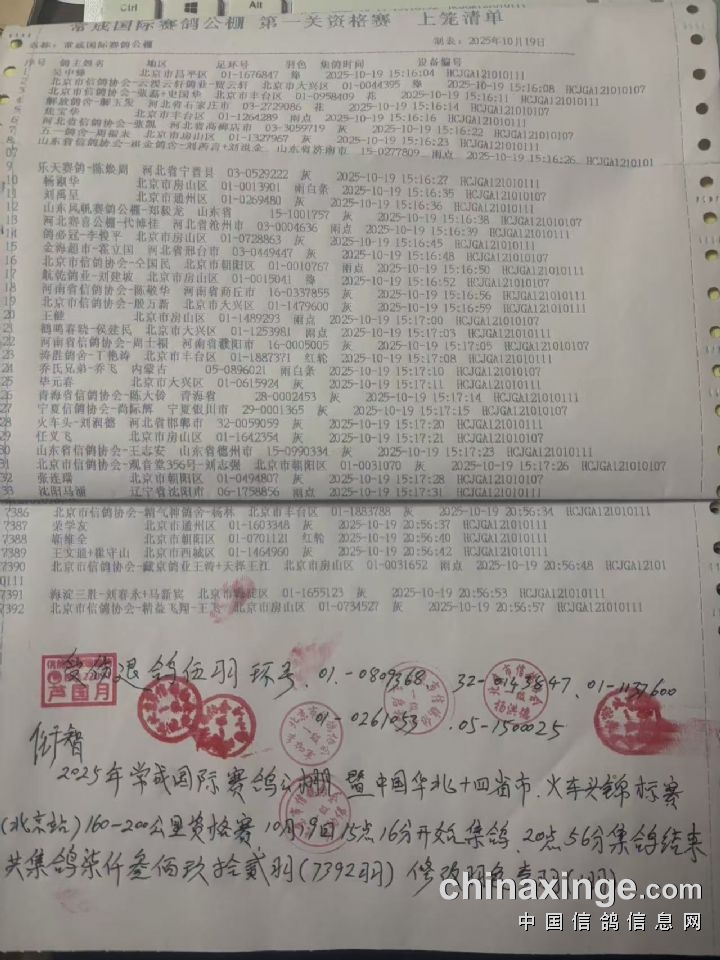 Ctrl Alt
常威国际赛鸽公棚 第一关资格赛 上笼清单
名称：常威国际赛鸽公棚 制表：2025年10月19日
序号 鸽主姓名 地区 足环号 羽色 集鸽时间 设备编号
北京市昌平区 01-1676847 绛 2025-10-19 15:16:04 HCJGA121010111
北京市大兴区 01-0044395 绛 2025-10-19 15:16:08 HCJGA121010111
北京市信鸽协会-张磊+史国华 北京市丰台区 01-0958409 2025-10-19 15:16:11 HCJGA121010107
解放鸽舍-解玉发 河北省石家庄市 03-2729086 花 2025-10-19 15:16:14 HCJGA121010107
焦宝华 北京市丰台区 01-1264289 雨点 2025-10-19 15:16:16 HCJGA121010111
河北省信鸽协会-张凯 河北省高碑店市 03-3059719 灰 2025-10-19 15:16:22 HCJGA121010107
五一鸽舍-周福永 北京市房山区 01-1327967 灰 2025-10-19 15:16:23 HCJGA121010107
山东省济南市 15-0277809 雨点 2025-10-19 15:16:26 HCJGA121010111
9 乐天赛鸽-陈焕周 河北省宁晋县 03-0529222 灰 2025-10-19 15:16:27 HCJGA121010111
10 杨淑华 北京市房山区 01-0013901 雨白条 2025-10-19 15:16:35 HCJGA121010107
11 刘禹呈 北京市通州区 01-0269480 灰 2025-10-19 15:16:36 HCJGA121010111
12 山东风帆赛鸽公棚-郑毅龙 山东省 15-1001757 灰 2025-10-19 15:16:38 HCJGA121010107
13 河北赛喜公棚-代博佳 河北省沧州市 03-0004636 雨点 2025-10-19 15:16:39 HCJGA121010111
14 鸽必冠-李俊平 北京市房山区 01-0728863 灰 2025-10-19 15:16:45 HCJGA121010111
15 金海超市-霍立国 河北省邢台市 03-0449447 灰 2025-10-19 15:16:48 HCJGA121010107
16 北京市信鸽协会-仝国民 北京市朝阳区 01-0010767 雨点 2025-10-19 15:16:50 HCJGA121010111
17 航乾鸽业-刘建坡 北京市房山区 01-0015041 绛 2025-10-19 15:16:52 HCJGA121010107
18 河南省信鸽协会-陈敬华 河南省商丘市 16-0337855 灰 2025-10-19 15:16:56 HCJGA121010111
19 北京市信鸽协会-殷万新 北京市大兴区 01-1479600 灰 2025-10-19 15:16:59 HCJGA121010107
20 王健 北京市房山区 01-1489293 雨点 2025-10-19 15:17:00 HCJGA121010111
21 鹤鸣春晓-侯建民 北京市大兴区 01-1253981 雨点 2025-10-19 15:17:03 HCJGA121010107
22 河南省信鸽协会-周士福 河南省濮阳市 16-0005005 灰 2025-10-19 15:17:05 HCJGA121010111
23 涛胜鸽舍-丁艳涛 北京市丰台区 01-1887371 红轮 2025-10-19 15:17:08 HCJGA121010107
24 乔氏兄弟-乔飞 内蒙古 05-0896021 雨白条 2025-10-19 15:17:10 HCJGA121010111
25 毕元春 北京市大兴区 01-0615924 灰 2025-10-19 15:17:11 HCJGA121010107
26 青海省信鸽协会-陈大龄 青海省 28-0002453 灰 2025-10-19 15:17:14 HCJGA121010111
27 宁夏信鸽协会-尚际辉 宁夏银川市 29-0001365 灰 2025-10-19 15:17:15 HCJGA121010107
28 火车头-刘润德 河北省邯郸市 32-0059059 灰 2025-10-19 15:17:20 HCJGA121010111
29 任义飞 北京市房山区 01-1642354 灰 2025-10-19 15:17:21 HCJGA121010107
30 山东省信鸽协会-王志安 山东省德州市 15-0990334 灰 2025-10-19 15:17:23 HCJGA121010111
31 北京市信鸽协会-观音堂356号-刘志强 北京市朝阳区 01-0031070 灰 2025-10-19 15:17:26 HCJGA121010107
32 张连瑞 北京市朝阳区 01-0494807 灰 2025-10-19 15:17:28 HCJGA121010111
33 沈阳马灏 辽宁省沈阳市 06-1758856 雨点 2025-10-19 15:17:31 HCJGA121010111
7386 北京市信鸽协会-精气神鸽舍-杨林 北京市丰台区 01-1883788 灰 2025-10-19 20:56:34 HCJGA121010111
7387 荣学友 北京市通州区 01-1603348 灰 2025-10-19 20:56:37 HCJGA121010111
7388 靳维全 北京市朝阳区 01-0701121 红轮 2025-10-19 20:56:40 HCJGA121010111
7389 王文通+崔守山 北京市西城区 01-1464960 灰 2025-10-19 20:56:42 HCJGA121010111
7390 北京市信鸽协会-臧京鸽业王涛+天泽王江 北京市房山区 01-0031652 雨点 2025-10-19 20:56:48 HCJGA12101
0111
7391 海淀三胜-刘春永+马新宾 北京市海淀区 01-1655123 灰 2025-10-19 20:56:53 HCJGA121010111
7392 北京市信鸽协会-精益飞翔-王飞 北京市房山区 01-0734527 灰 2025-10-19 20:56:57 HCJGA121010111
受伤退鸽伍羽 环号、01-0809368 32-0143847、01-1137600
芦国月
01-0261053 、05-1500025
2025年常威国际赛鸽公棚暨中国华北十四省市、火车头锦标赛
(北京站)160-200公里资格赛 10月19日15点16分开始集鸽、20点56分集鸽结束
共集鸽柒仟叁佰玖拾贰羽(7392羽) 修改羽色
chinaxinge.com
中国信鸽信息网